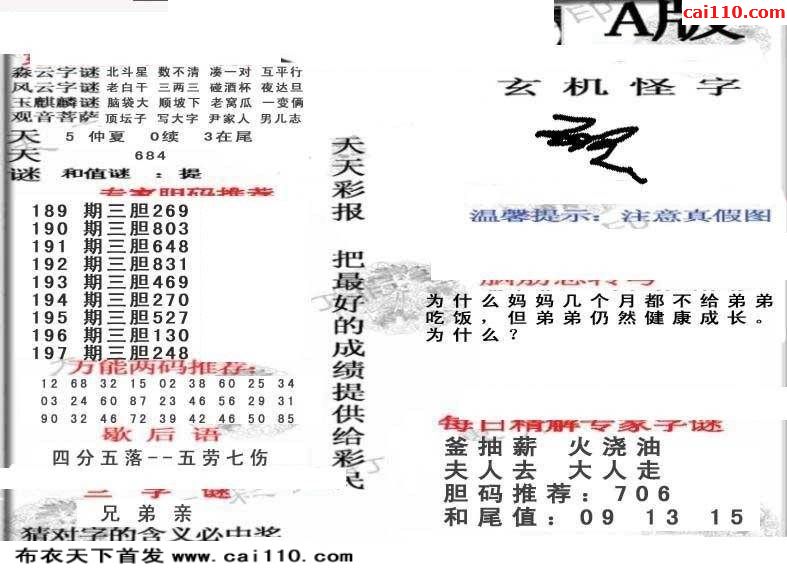 A版
cai110.com
森云字谜 北斗星 数不清 凑一对 互平行
风云字谜 老白干 三两三 碰酒杯 夜达旦
玉麒麟谜 脑袋大 顺坡下 老窝瓜 一变俩
观音菩萨 顶坛子 写大字 尹家人 男儿志
天 5 仲夏 0续 3在尾
天 684
谜 和值谜 ：提
专家胆码推荐
189 期三胆269
190 期三胆803
191 期三胆648
192 期三胆831
193 期三胆469
194 期三胆270
195 期三胆527
196 期三胆130
197 期三胆248
万能两码推荐:
12 68 32 15 02 38 60 25 34
03 24 60 87 23 46 56 29 31
90 32 46 72 39 42 46 50 85
歇后语
四分五落--五劳七伤
三字谜
兄弟亲
猜对字的含义必中奖
布衣天下首发 www.cai110.com
天天彩报 把最好的成绩提供给彩民
玄机怪字
温馨提示：注意真假图
脑筋急转弯
为什么妈妈几个月都不给弟弟
吃饭，但弟弟仍然健康成长。
为什么？
每日精解专家字谜
釜抽薪 火浇油
夫人去 大人走
胆码推荐：706
和尾值：09 13 15